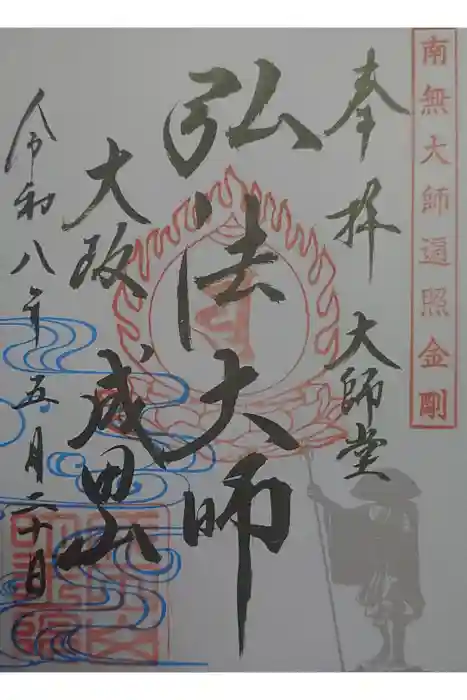 南無大師遍照金剛
奉拝 大師堂
弘法大師
大阪 成田山
令和八年五月二十日